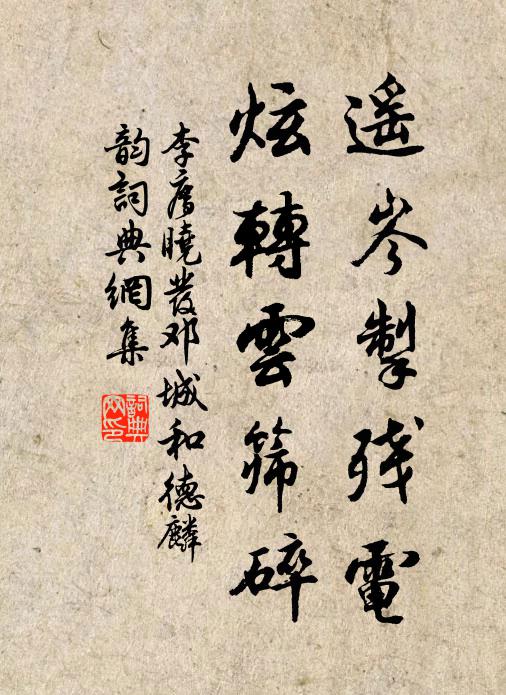 遥岑掣残電
炫轉雲篩碎
李廌曉發邓城和德麟
韵詞典網集
詞典网印